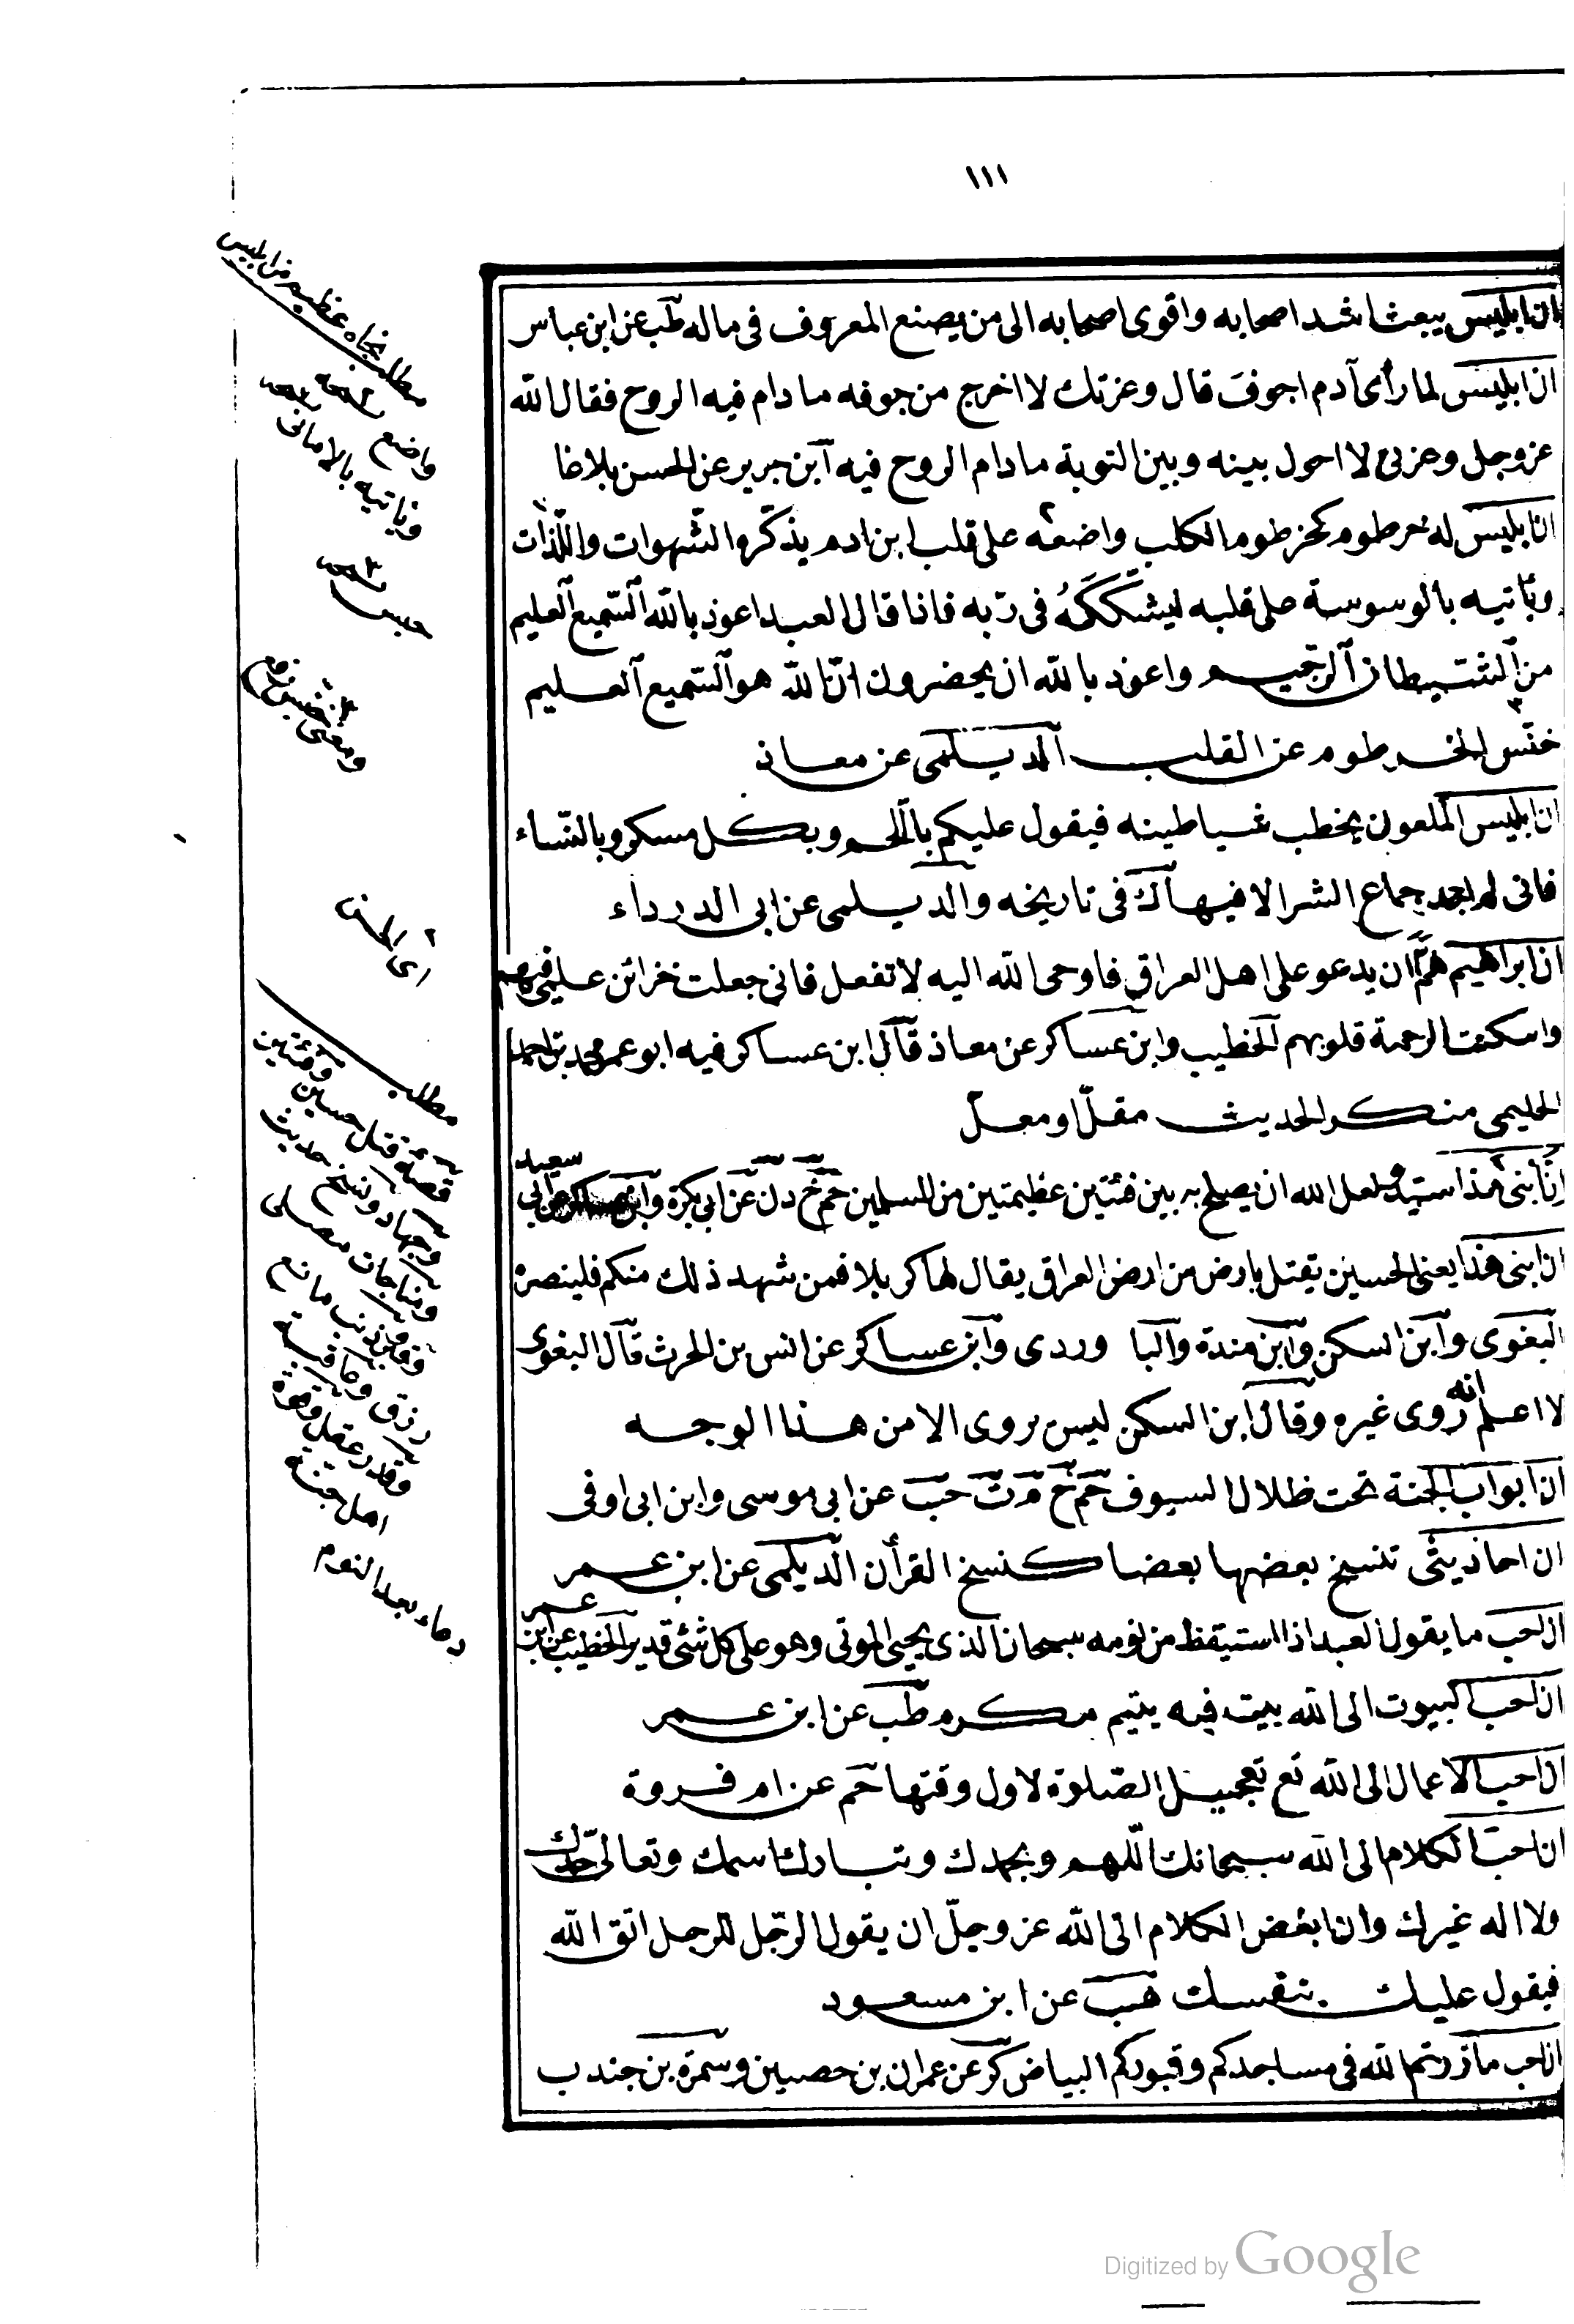 ١١١
ان ابليس يبعث اشد اصحابه واقوى اصحابه الى من يصنع المعروف فى ماله طب عن ابن عباس
ان ابليس لما رأى آدم اجوف قال وعزتك لا اخرج من جوفه ما دام فيه الروح فقال الله
عز وجل وعزتى لا احول بينه وبين التوبة ما دام الروح فيه ابن جرير عن الحسن بلاغا
ان ابليس له خرطوم كخرطوم الكلب واضعه على قلب ابن ادم يذكّره الشّهوات واللّذات
ويأتيه بالوسوسة على قلبه ليشككه فى ربّه فاذا قال العبد اعوذ بالله السّميع العليم
من الشّيطان الرّجيم واعوذ بالله ان يحضرون انّ الله هو السّميع العليم
خنّس الخرطوم عن القلب الديلمى عن معاذ
ان ابليس الملعون يخطب شياطينه فيقول عليكم باللّحم وبكل مسكر وبالنّساء
فانى لم اجد جماع الشر الا فيها ك فى تاريخه والديلمى عن ابى الدرداء
ان ابراهيم همّ ان يدعو على اهل العراق فاوحى الله اليه لا تفعل فانى جعلت خزائن علمى فيهم
واسكنت الرحمة قلوبهم الخطيب وابن عساكر عن معاذ قال ابن عساكر فيه ابو عمر محمد بن احمد
الحليمى منكر الحديث مقلّ او معلّ
انّ ابنى هذا سيّد ولعل الله ان يصلح به بين فئتين عظيمتين من المسلمين حم خ د ن عن ابى بكرة وابن عساكر عن ابى
سعيد
ان ابنى هذا يعنى الحسين يقتل بارض من ارض العراق يقال لها كربلا فمن شهد ذلك منكم فلينصره
البغوى وابن السكن وابن مندة والباوردى وابن عساكر عن انس بن الحرث قال البغوى
لا اعلم انه روى غيره وقال ابن السكن ليس يروى الا من هذا الوجه
ان ابواب الجنة تحت ظلال السيوف حم خ م ت حب عن ابى موسى وابن ابى اوفى
ان احاديثى تنسخ بعضها بعضا كنسخ القرأن الديلمى عن ابن عمر
ان احب ما يقول العبد اذا استيقظ من نومه سبحان الذى يحيى الموتى وهو على كل شئ قدير الخطيب عن ابن
عمر
ان احب البيوت الى الله بيت فيه يتيم مكرم طب عن ابن عمر
ان احب الاعمال الى الله تع تعجيل الصّلوة لاول وقتها حم عن ام فروة
ان احبّ الكلام الى الله سبحانك اللّهم وبحمدك وتبارك اسمك وتعالى جدّك
ولا اله غيرك وان ابغض الكلام الى الله عز وجلّ ان يقول الرّجل للرجل اتّق الله
فيقول عليك بنفسك هب عن ابن مسعود
ان احب ما زرتم الله فى مساجدكم وقبوركم البياض كر عن عمران بن حصين وسمرة بن جندب
مطلب نجاه عظيم من ابليس
واضع
ويأتيه بالامانى
اى الجنس
مطلب
قصة قتل حسين وفئتين
وجهاد ونسخ حديث
ومناجات مصلى
رزق وعافية
اهل جنة
دعاء بعد النوم
Digitized by Google